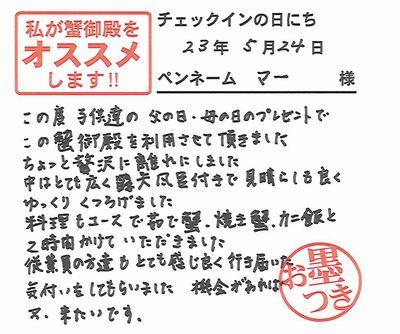 私が蟹御殿を
オススメ
します!!
チェックインの日にち
23年 5月24日
ペンネーム マー 様
この度 子供達の 父の日・母の日のプレゼントで
この蟹御殿を利用させて頂きました
ちょっと贅沢に離れにしました
中はとても広く露天風呂付きで見晴らしも良く
ゆっくり くつろげました
料理もコースで茹で蟹、焼き蟹、カニ飯と
2時間かけていただきました
従業員の方達もとても感じ良く行き届いた
気付いをしてもらいました 機会があれば
又、来たいです。
お墨つき